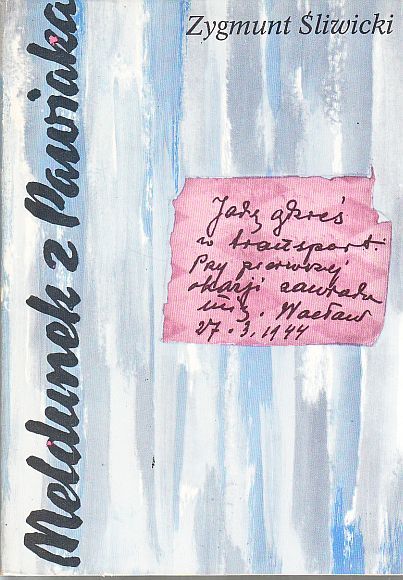 Zygmunt Śliwicki
Meldunek z Pawiaka
Jadę gdzieś
w transport.
Przy pierwszej
okazji zawiada
mię. Wacław
27.3.1944